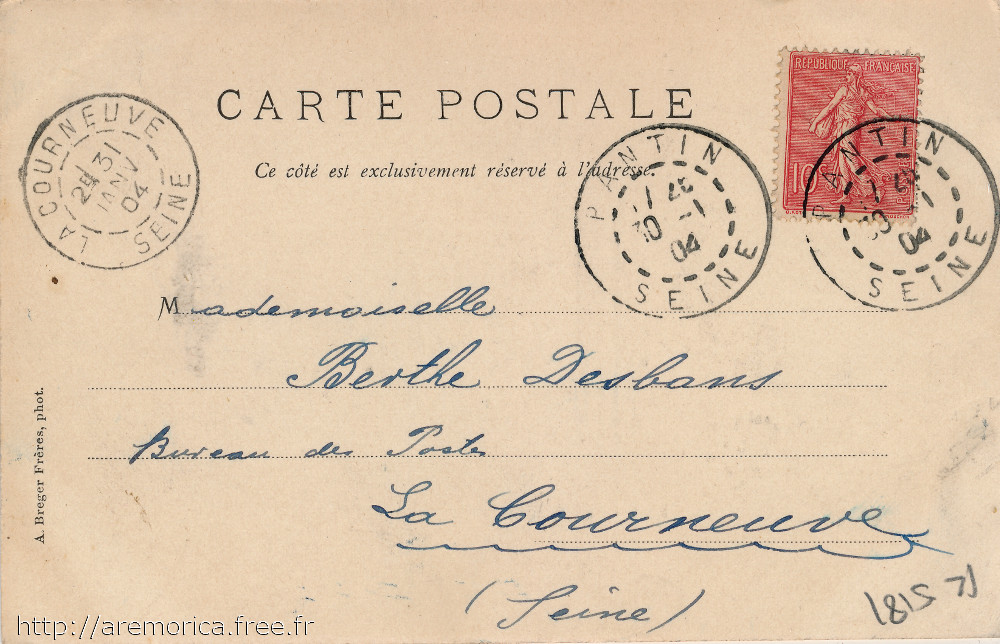 CARTE POSTALE
Ce côté est exclusivement réservé à l'adresse.
RÉPUBLIQUE FRANÇAISE
10
LA COURNEUVE
31
JANV
04
SEINE
PANTIN
30 -1
04
SEINE
PANTIN
30 -1
04
SEINE
Mademoiselle
Berthe Desbans
Bureau des Postes
La Courneuve
(Seine)
A. Breger Frères, phot.
5181
http://aremorica.free.fr